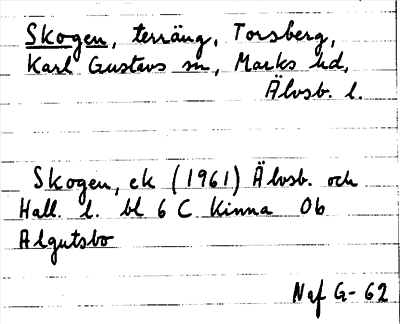 Skogen, terräng, Torsberg,
Karl Gustavs sn, Marks hd,
Älvsb. l.
Skogen, ek (1961) Älvsb. och
Hall. l. bl 6 C Kinna Ob
Algutsbo
Naf G-62